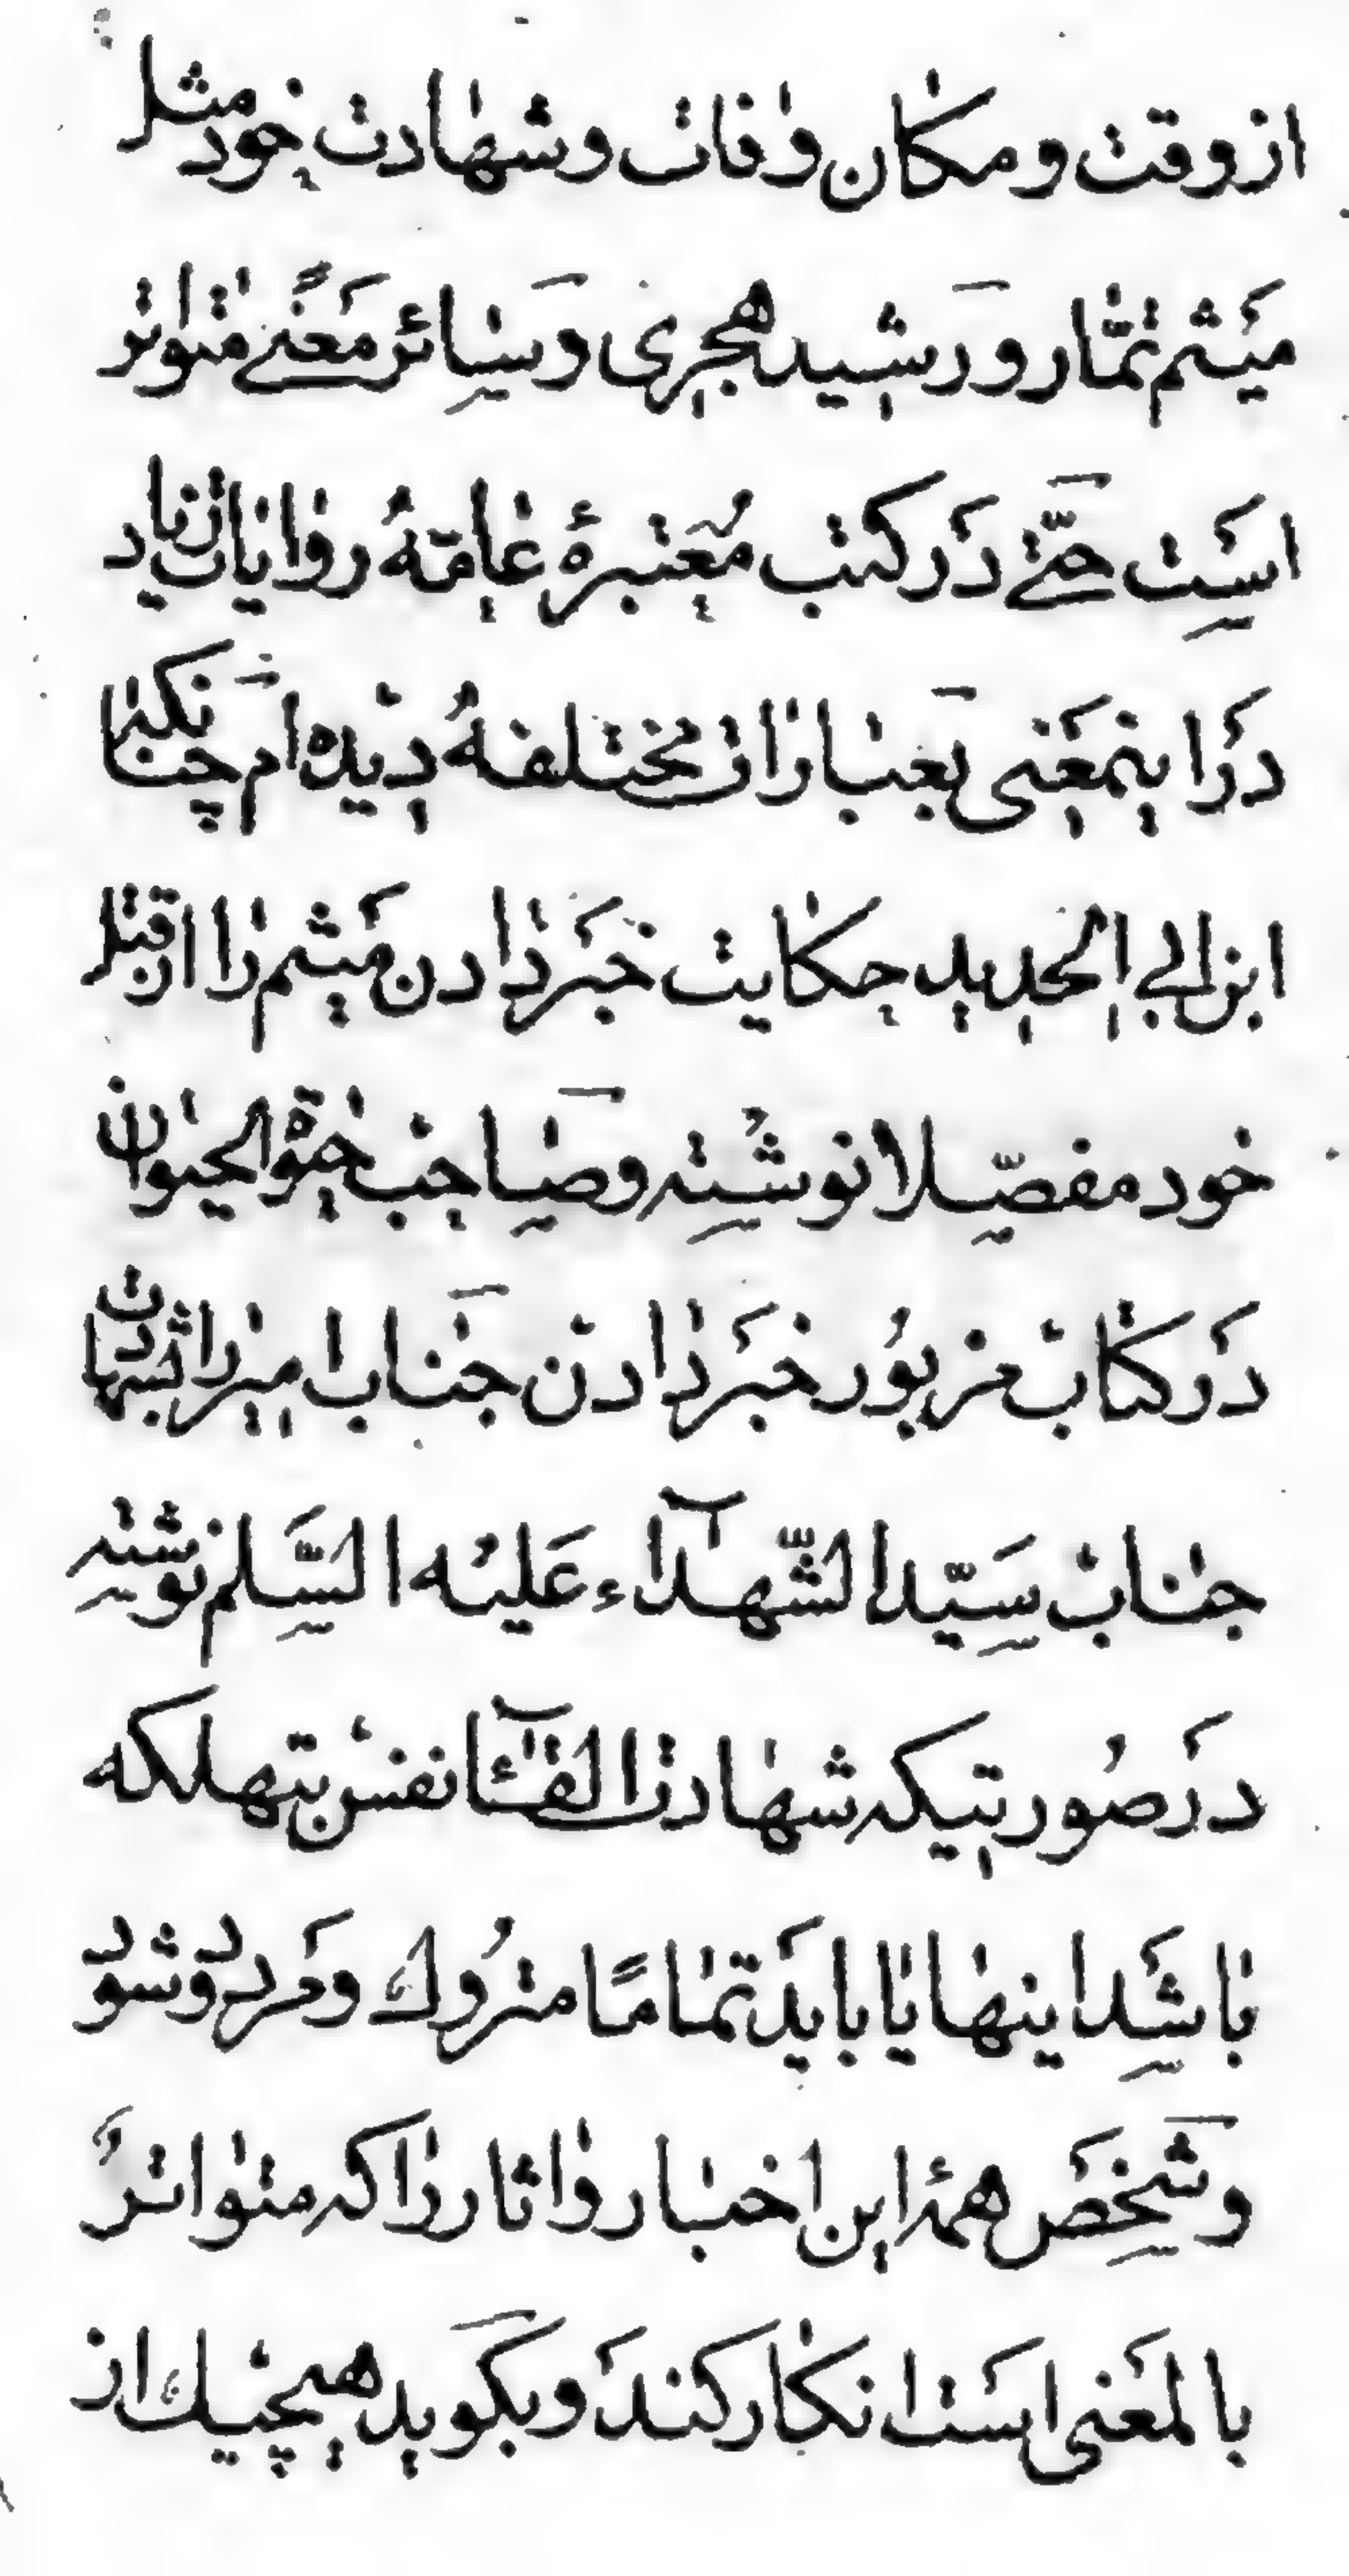 از وقت و مکان وفات و شهادت خود مثل
میثم تمّار و رشید هجری و سائر معنیً متواتر
است حتّی در کتب معتبرهٔ عامّه روایات زیاد
در اینمعنی بعبارات مختلفه دیده‌ام چنانکه
ابن ابی الحدید حکایت خبر دادن میثم را از قتل
خود مفصّلا نوشته و صاحب حیوة الحیوان
در کتاب مزبور خبر دادن جناب امیر را بشهادت
جناب سیّد الشّهدآء علیه السّلم نوشته
در صورتیکه شهادت القآء نفس بتهلکه
باشد اینها یا باید تمامًا متروک و مردود شود
و شخص همهٔ این اخبار و اثار را که متواتر
بالمعنی است انکار کند و بکوید هیچیک از